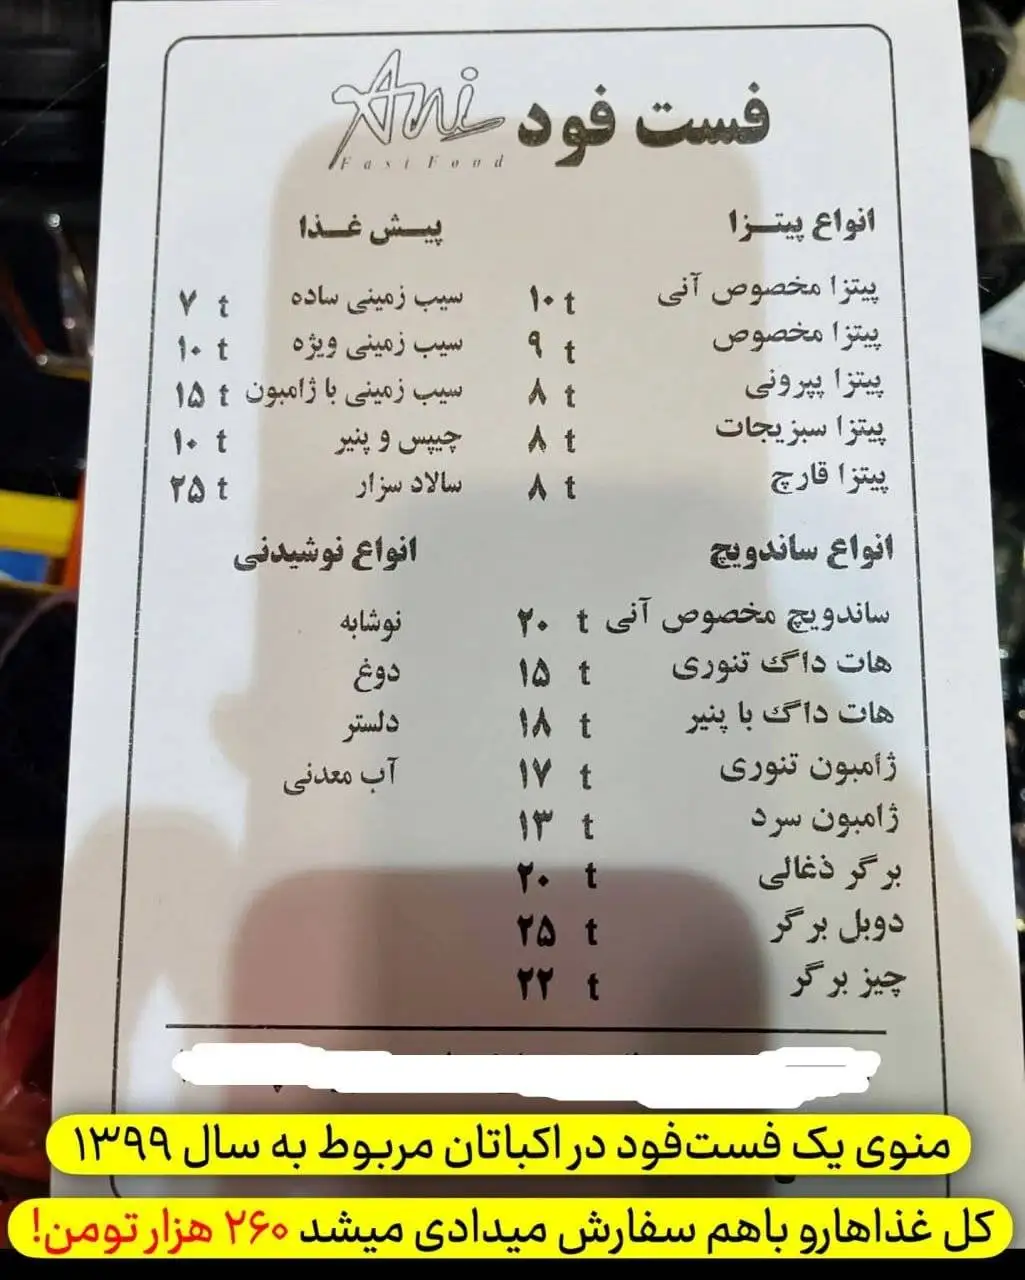 فست فود Ani
Fast Food
انواع پیتزا
پیتزا مخصوص آنی ۱۰ t
پیتزا مخصوص ۹ t
پیتزا پپرونی ۸ t
پیتزا سبزیجات ۸ t
پیتزا قارچ ۸ t
پیش غذا
سیب زمینی ساده ۷ t
سیب زمینی ویژه ۱۰ t
سیب زمینی با ژامبون ۱۵ t
چیپس و پنیر ۱۰ t
سالاد سزار ۲۵ t
انواع ساندویچ
ساندویچ مخصوص آنی ۲۰ t
هات داگ تنوری ۱۵ t
هات داگ با پنیر ۱۸ t
ژامبون تنوری ۱۷ t
ژامبون سرد ۱۳ t
برگر ذغالی ۲۰ t
دوبل برگر ۲۵ t
چیز برگر ۲۲ t
انواع نوشیدنی
نوشابه
دوغ
دلستر
آب معدنی
منوی یک فست‌فود در اکباتان مربوط به سال ۱۳۹۹
کل غذاهارو باهم سفارش میدادی میشد ۲۶۰ هزار تومن!